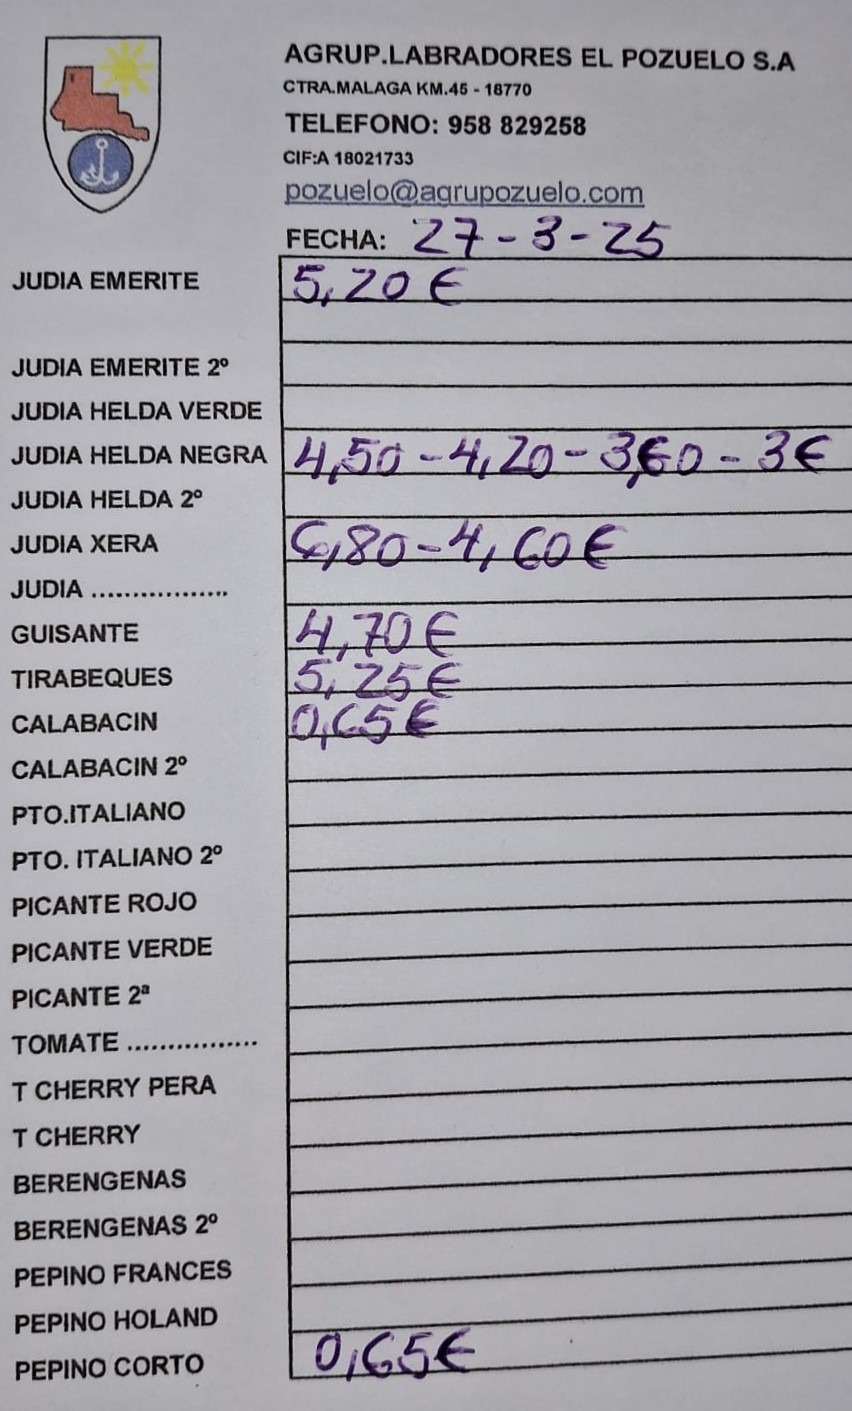 AGRUP.LABRADORES EL POZUELO S.A
CTRA.MALAGA KM.45 - 18770
TELEFONO: 958 829258
CIF:A 18021733
pozuelo@agrupozuelo.com
FECHA: 27-3-25
JUDIA EMERITE 5,20 €
JUDIA EMERITE 2º
JUDIA HELDA VERDE
JUDIA HELDA NEGRA 4,50 - 4,20 - 3,60 - 3 €
JUDIA HELDA 2º
JUDIA XERA 6,80 - 4,60 €
JUDIA .................
GUISANTE 4,70 €
TIRABEQUES 5,25 €
CALABACIN 0,65 €
CALABACIN 2º
PTO.ITALIANO
PTO. ITALIANO 2º
PICANTE ROJO
PICANTE VERDE
PICANTE 2ª
TOMATE ................
T CHERRY PERA
T CHERRY
BERENGENAS
BERENGENAS 2º
PEPINO FRANCES
PEPINO HOLAND
PEPINO CORTO 0,65 €